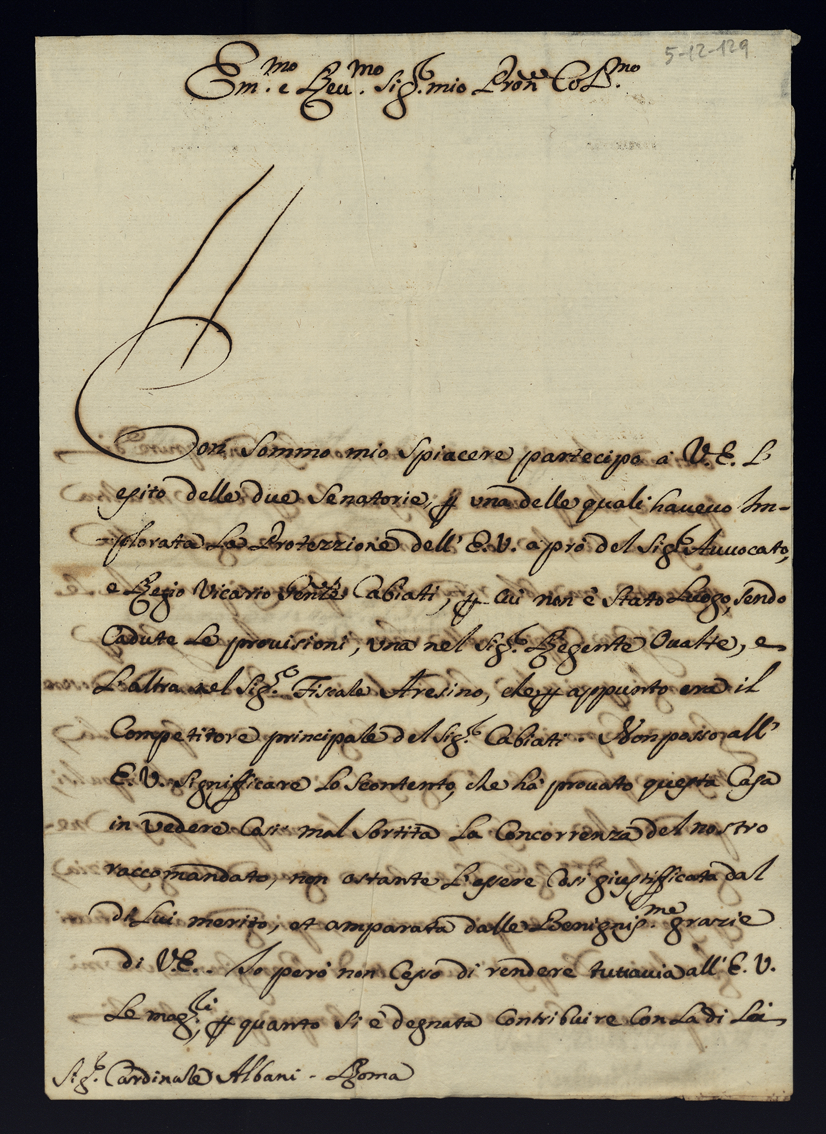 5-12-129
Em.mo e Rev.mo Sig.r mio Pron Col.mo
Con sommo mio spiacere partecipo à V.E. L
esito delle due Senatorie, p una delle quali havevo Im-
-plorata La Protezzione dell' E.V. a prò del Sig.r Avvocato,
e Regio Vicario Gen.le Cabiati, p Cui non è stato Luogo, sendo
Cadute Le provisioni, una nel Sig.r Regente Oualle, e
L'altra nel Sig.r Fiscale Aresino, che p appunto era il
Competitore principale del Sig.r Cabiati. Non posso all'
E.V. significare Lo scontento, che hà provato questa Casa
in vedere Così mal sortita La Concorrenza del nostro
raccomandato, non ostante L'essere Così giustifficata dal
di Lui merito, et amparata dalle Benignis.me grazie
di V.E.. Io però non Cesso di rendere tuttavia all' E.V.
Le mag.ri, p quanto si è degnata Contribuire Con La di Lei
Sig.r Cardinale Albani - Roma